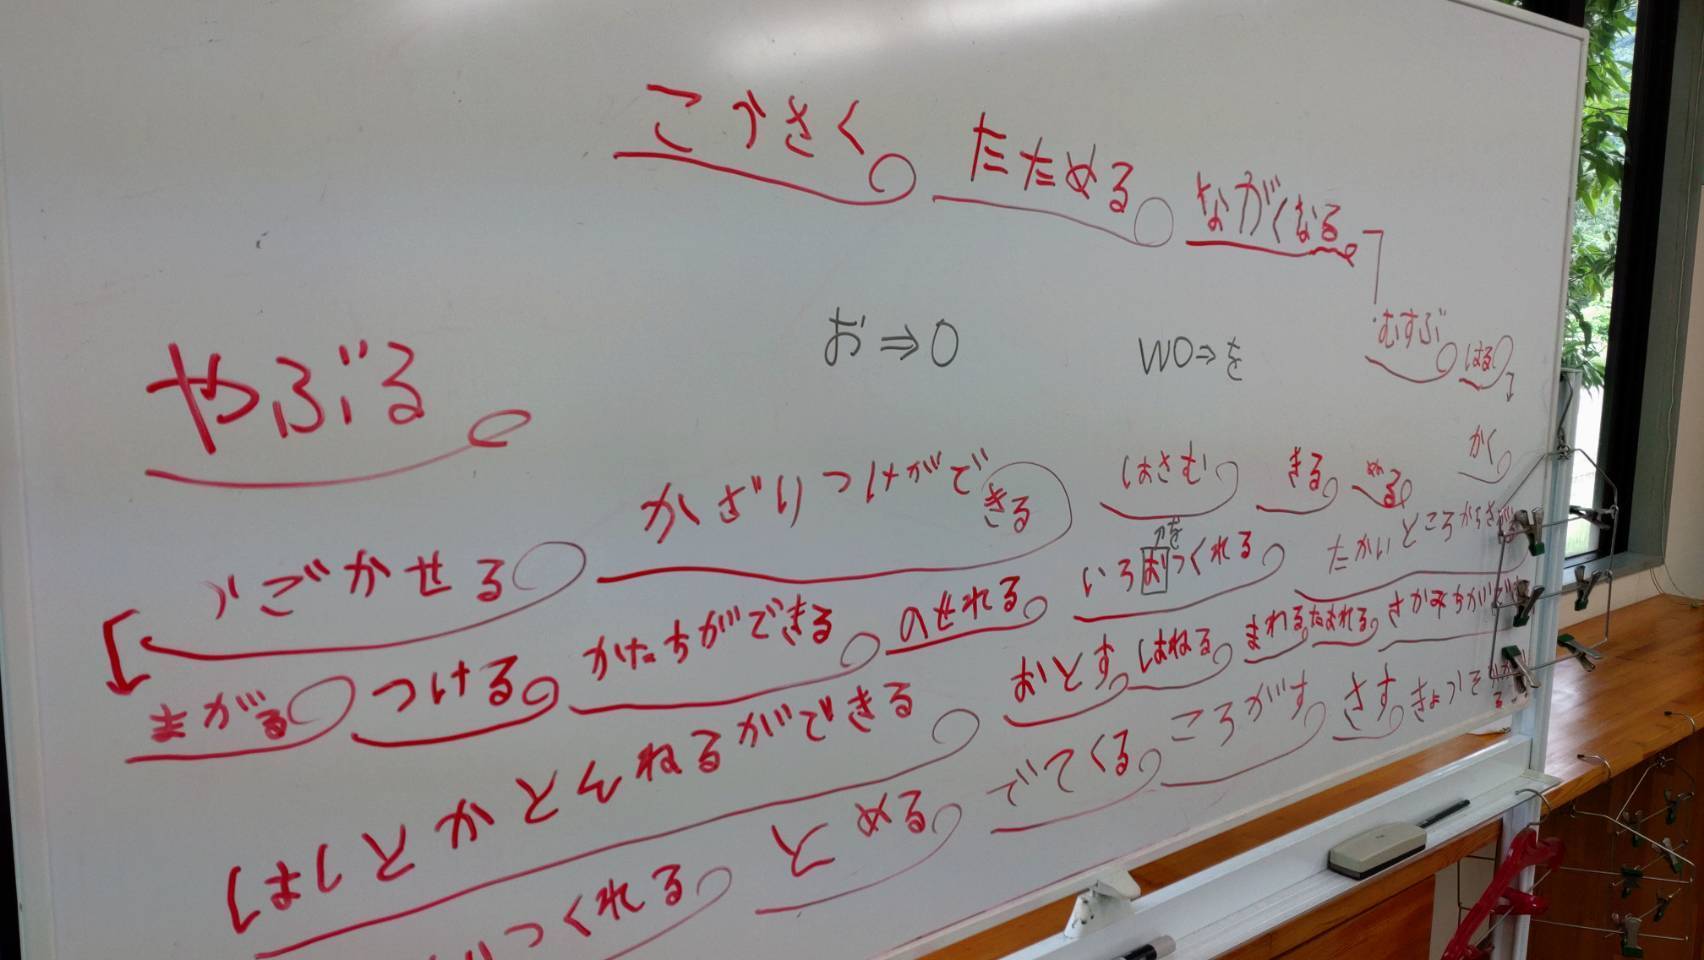 たためる
ながくなる
むすぶ はる
お⇒O
WO⇒を
やぶる
かく
かざりつけができる
はさむ きる ぬる
ごかせる
いろおつくれる
を
たかいところから
まがる つける かたちができる のせれる
おとす はねる まわる たおれる
はしとかとんねるができる
でてくる ころがす さす
つくれる